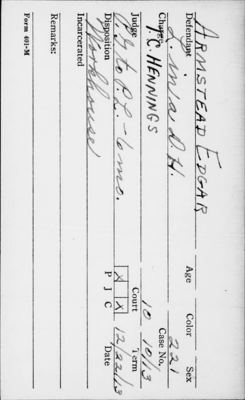 ARMSTEAD EDGAR
Defendant Age Color Sex
L. in a D. H. 221
Charge Case No.
T. C. HENNINGS 10 10/13
Judge Court Term
P. G. to P. L. - 6 mo. X X 12/22/13
Disposition P J C Date
Workhouse
Incarcerated
Remarks:
Form 401-M